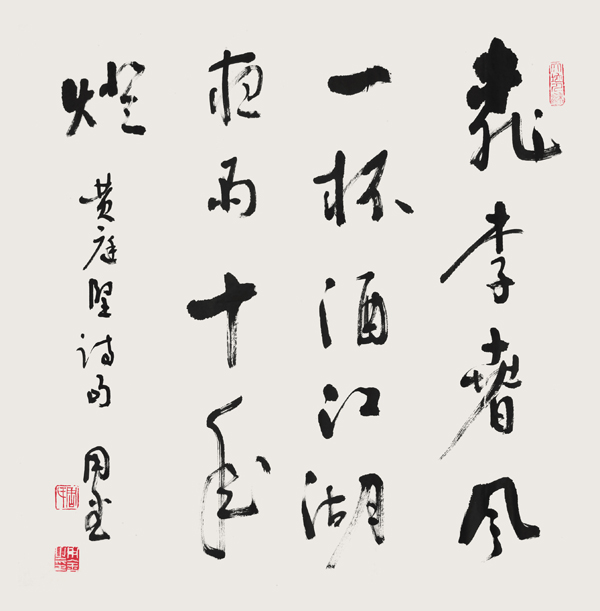 桃李春风
一杯酒江湖
夜雨十年
燈
黄庭坚诗句